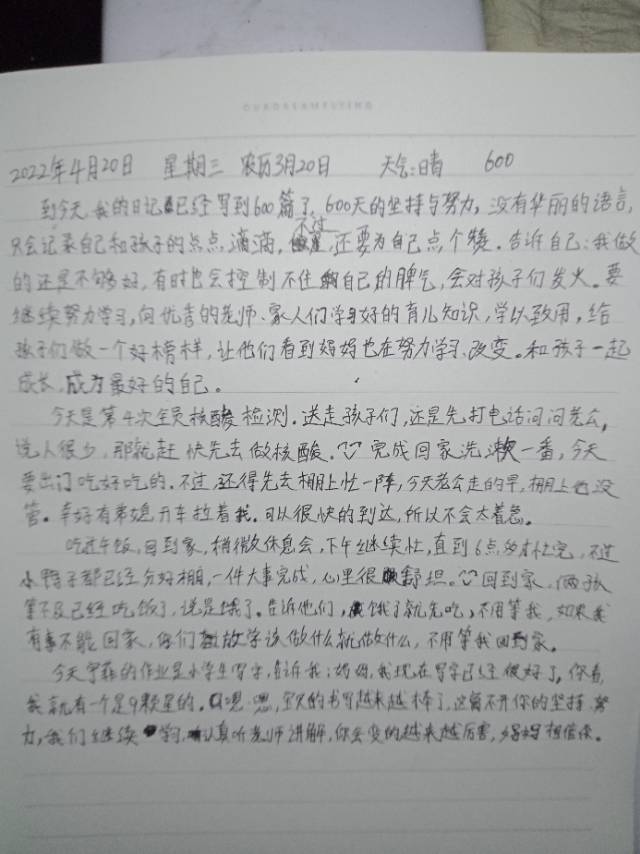 2022年4月20日 星期三 农历3月20日 天气:晴 600
到今天,我的日记已经写到600篇了,600天的坚持与努力,没有华丽的语言,
只会记录自己和孩子的点点滴滴,不过,还要为自己点个赞。告诉自己:我做
的还是不够好,有时也会控制不住自己的脾气,会对孩子们发火。要
继续努力学习,向优秀的老师、家人们学习好的育儿知识,学以致用,给
孩子们做一个好榜样,让他们看到妈妈也在努力学习、改变。和孩子一起
成长,成为最好的自己。
今天是第4次全员核酸检测。送走孩子们,还是先打电话问问老公,
说人很少,那就赶快先去做核酸。完成回家洗漱一番,今天
要出门吃好吃的。不过,还得先去棚上忙一阵,今天老公走的早,棚上也没
管。幸好有弟媳开车拉着我。可以很快的到达,所以不会太着急。
吃过午饭,回到家,稍微休息会,下午继续忙,直到6点多才忙完,不过
小鸭子都已经分好棚,一件大事完成,心里很舒坦。回到家,俩孩
等不及已经吃饭了,说是饿了。告诉他们,饿了就先吃,不用等我,如果我
有事不能回家,你们放学该做什么就做什么,不用等我回家。
今天的作业是小学生写字,告诉我:妈妈,我现在写字已经很好了,你看,
我就有一个是9颗星的。嗯嗯,的书写越来越棒了,这离不开你的坚持、努
力,我们继续学习,认真听老师讲解,你会变的越来越厉害,妈妈相信你。